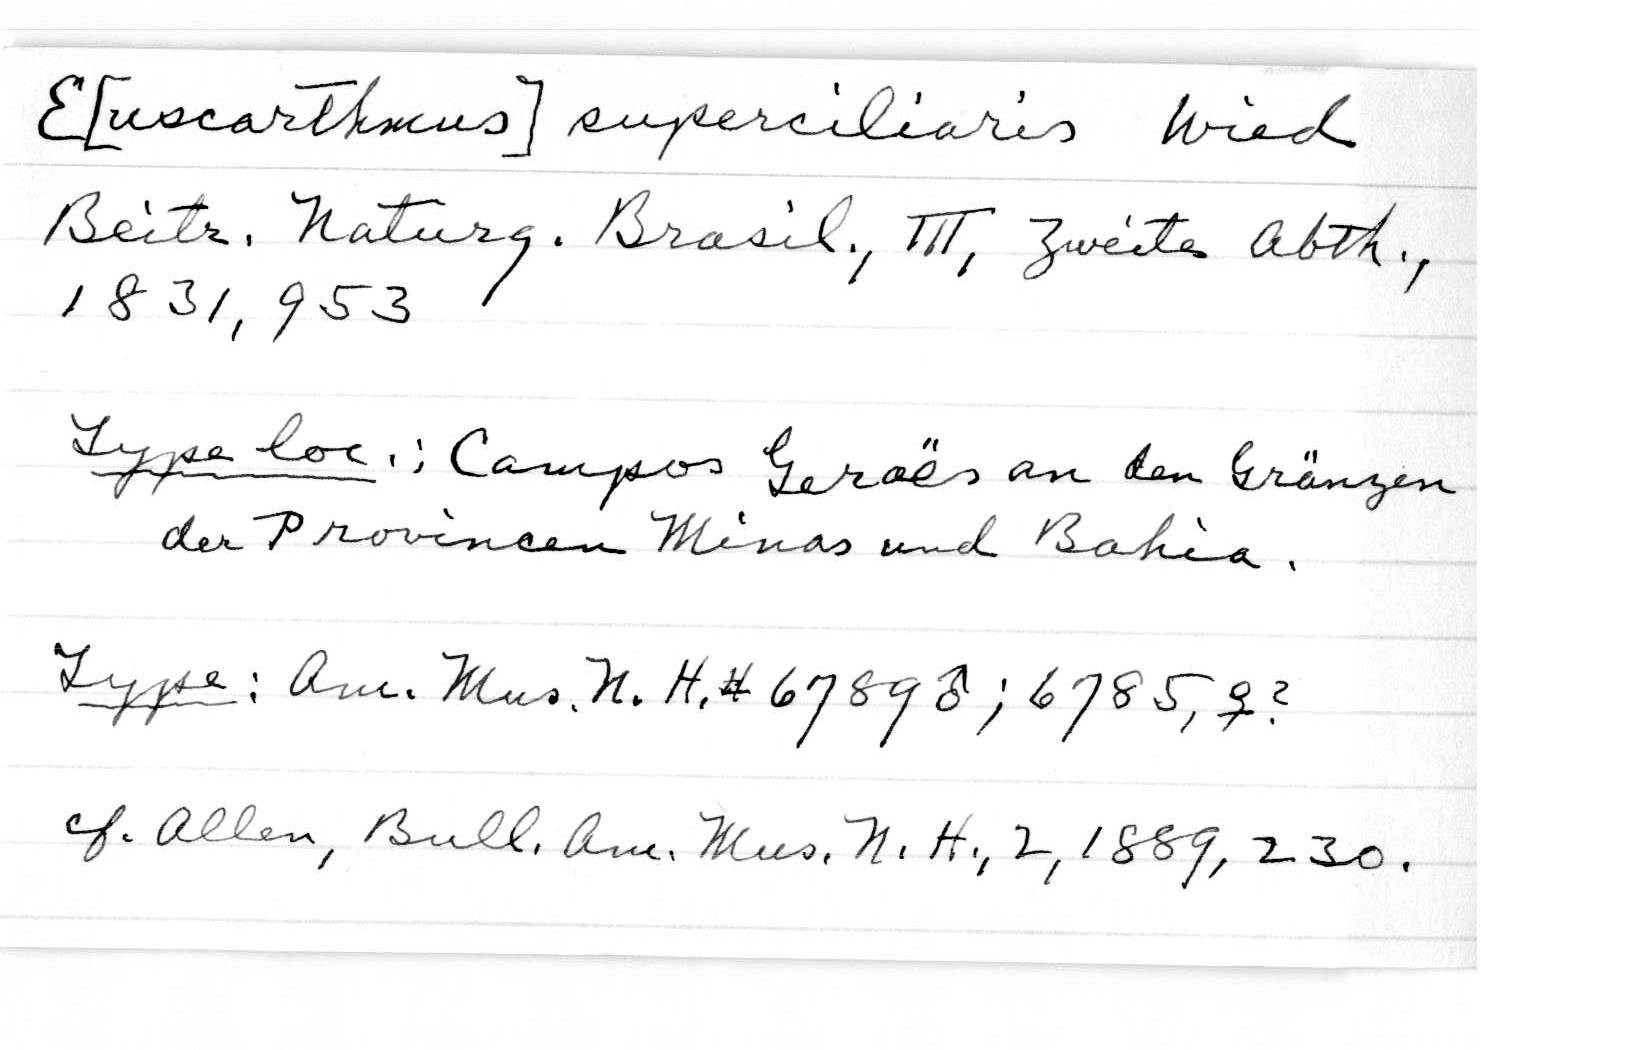 E[uscarthmus] superciliaris Wied
Beitr. Naturg. Brasil., III, Zweite Abth.,
1831, 953
Type loc.: Campos Geraës an den Gränzen
der Provincen Minas und Bahia.
Type: Am. Mus. N. H. # 6789♂; 6785, ♀?
cf. Allen, Bull. Am. Mus. N. H., 2, 1889, 230.